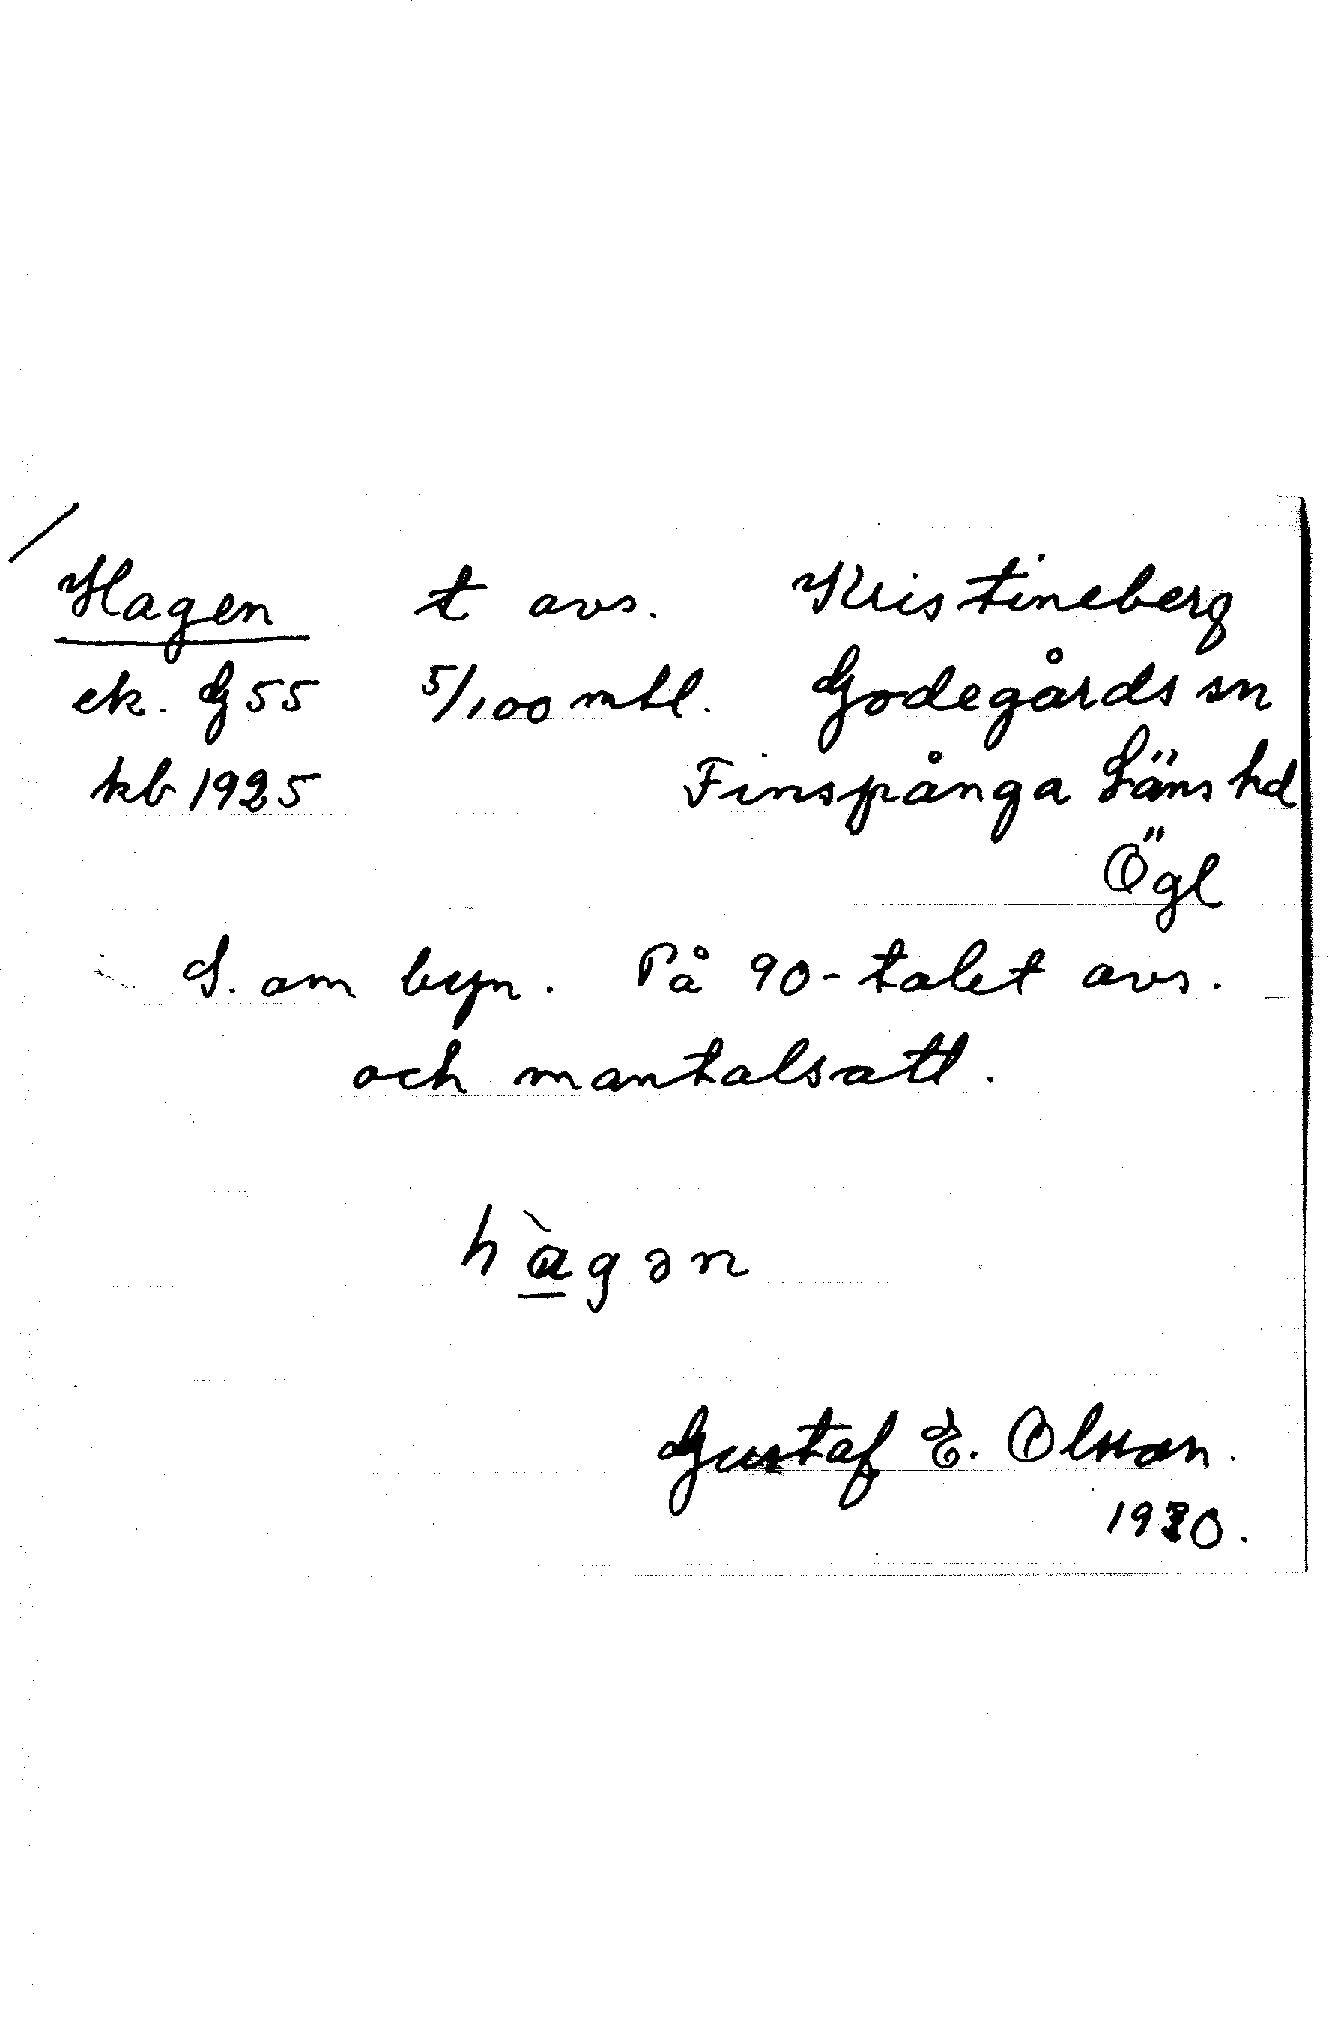 Hagen t avs. Kristineberg
ek. G55 5/100 mtl. Godegårds sn
kb 1925 Finspånga Läns hd
Ögl
S. om byn. På 90-talet avs.
och mantalsatt.
hàgən
Gustaf E. Olsson.
1930.